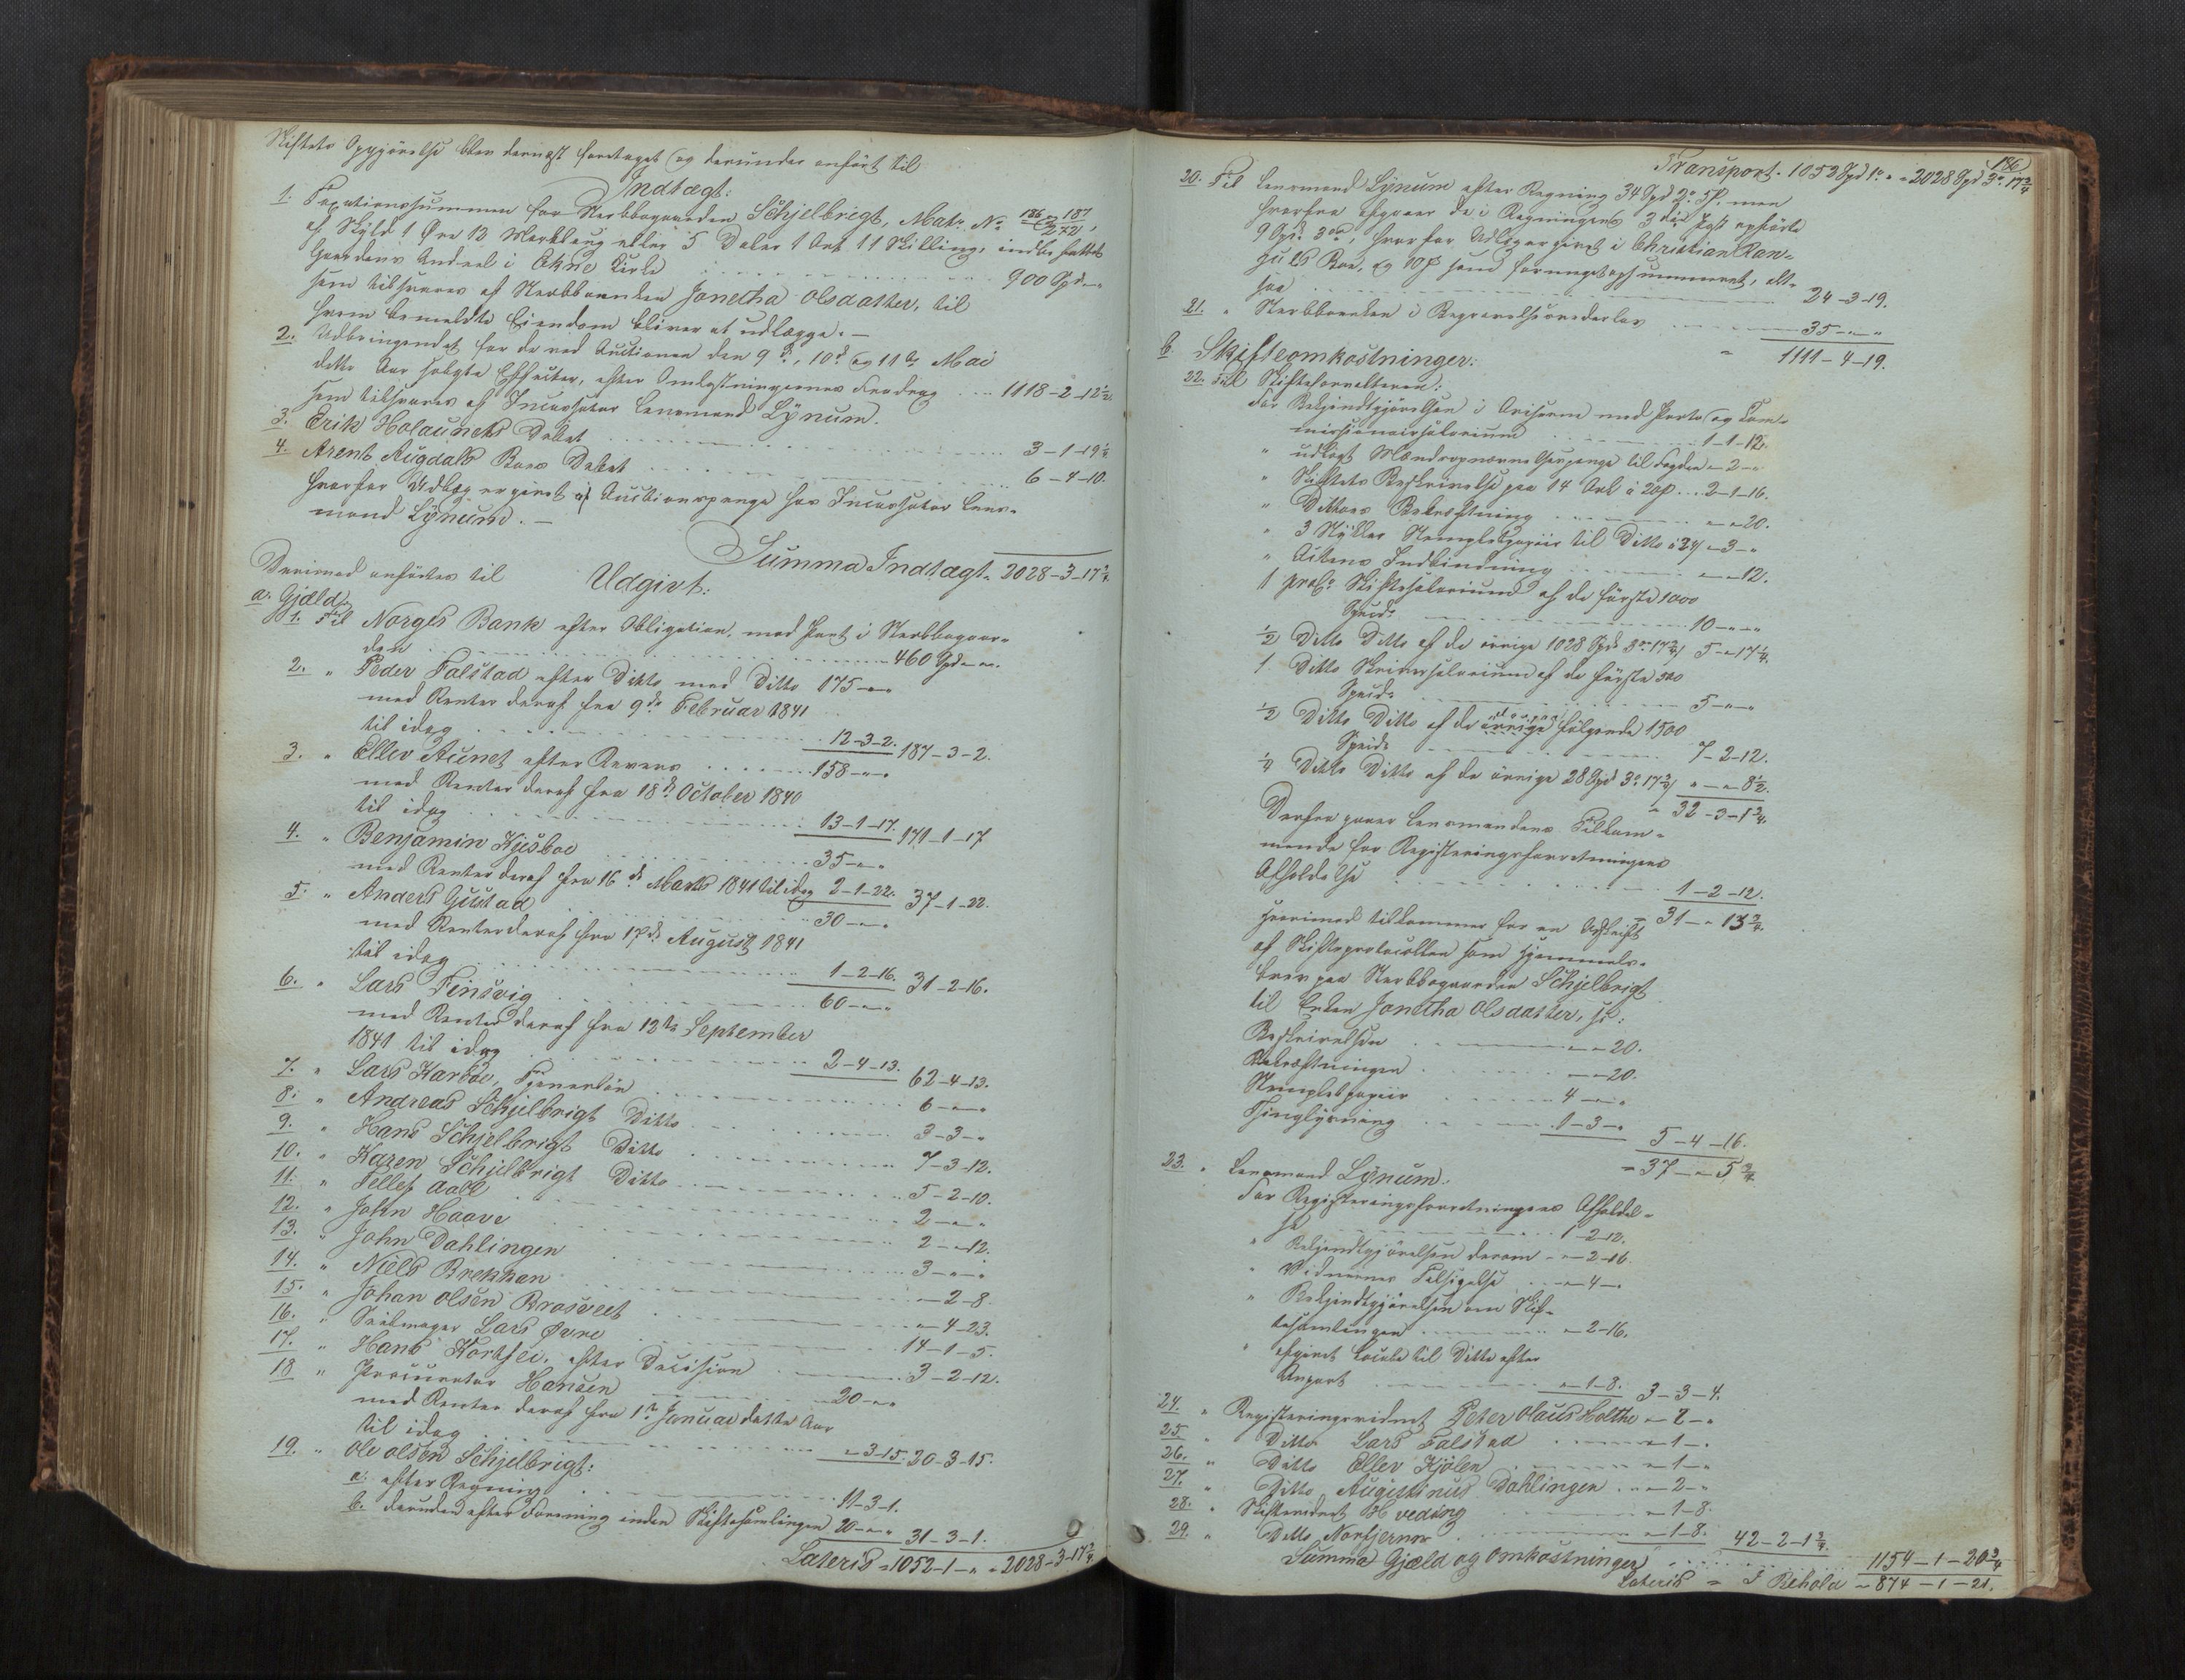 Skiftets Opgjörelse blev dernæst foretaget og derunder anfört til
Indtægt:
1. Taxationssummen for Sterbbogaarden Schjelbrigt, Matr. No 186 & 187/272,
af Skyld 1 Øre 13 Marklaug eller 5 Daler 1 Ort 11 Skilling, indbefattet
Gaardens Andeel i Ekne Kirke . . . 900 Spd - "
som tilsvares af Sterbboenken Jonetha Olsdatter, til
hvem bemeldte Eiendom bliver at udlægge. -
2. Udbringendet for de ved Auctionen den 9de, 10de og 11te Mai
dette Aar solgte Effecter, efter Omkostningernes Fradrag . . . 1118 - 2 - 12½
som tilsvares af Incassator Lensmand Lÿnum.
3. Erik Holaunets Debet . . . 3 - 1 - 19¼
4. Arent Rugdals Boes Debet . . . 6 - 4 - 10.
hvorfor Udlæg er givet i Auctionspenge hos Incassator Lens-
mand Lÿnum. -
Summa Indtægt. 2028 - 3 - 17¾.
Derimod anföres til
Udgivt:
a. Gjæld,
1. Til Norges Bank efter Obligation, med Pant i Sterbbogaar-
den . . . 460 Spd - "
2. " Peder Falstad efter Ditto med Ditto 175 - "
med Renter deraf fra 9de Februar 1841
til idag . . . 12-3-2. 187-3-2.
3. " Ellev Aunet efter Revers . . . 158 - "
med Renter deraf fra 18de October 1840
til idag . . . 13-1-17. 171-1-17
4. " Benjamin Kjesboe . . . 35 - "
med Renter deraf fra 16de Marts 1841 til idag 2-1-22. 37-1-22.
5. " Anders Gustad . . . 30 - "
med Renter deraf fra 17de August 1841
til idag . . . 1-2-16. 31-2-16.
6. " Lars Finsvig . . . 60 - "
med Renter deraf fra 12te September
1841 til idag . . . 2-4-13. 62-4-13.
7. " Lars Karboe, Tjenerlön . . . 6 - "
8. " Andreas Schjelbrigt Ditto . . . 3-3-"
9. " Hans Schjelbrigt Ditto . . . 7-3-12.
10. " Karen Schjelbrigt Ditto . . . 5-2-10.
11. " Tellef Aall . . . 2 - "
12. " John Haave . . . 2-"-12.
13. " John Dahlingen . . . 3 - "
14. " Niels Brekkan . . . "-2-8
15. " Johan Olsen Brasveet . . . "-4-23.
16. " Sadelmager Lars Øvre . . . 14-1-5.
17. " Hans Kortsei, efter Decision . . . 3-2-12.
18 " Procurator Hansen . . . 20 - "
med Renter deraf fra 1te Januar dette Aar
til idag . . . "-3-15. 20-3-15.
19. " Ole Olsen Schjelbrigt:
a. efter Regning . . . 11-3-1.
b. desuden efter Forening inden Skiftesamlingen 20 - " 31-3-1.
Lateris = 1052-1-" = 2028-3-17¾
186
Transport. 1052 Spd 1o " = 2028 Spd 3o 17¾
20. Til Lensmand Lÿnum efter Regning 34 Spd 2o 5s. men
hvorfra afgaaer de i Regningens 3die Post opförte
9 Spd 3o, hvorfor Udlæg er givet i Christian Ran-
guls Boe, og 10s som formeget opsummeret, alt-
saa . . . 24-3-19.
21. " Sterbboenken i Begravelsesvederlag . . . 35 - "
" 1111-4-19.
b. Skifteomkostninger:
22. Til Skifteforvalteren:
For Bekjendtgjörelsen i Aviserne med Porto og Com-
missionairsalarium . . . 1-1-12.
" udlagt Mændsopnævnelsespenge til Fogden "-2-"
" Skiftets Beskrivelse paa 14 Ark à 20s . . . 2-1-16.
" Dittoes Bekræftning . . . "-"-20.
" 3 Stykker Stemplet papiir til Ditto à 24s "-3-"
" Actens Indbinding . . . "-"-12.
1 proCt Skiftesalarium af de förste 1000
Specd. . . . 10 - "
½ Ditto Ditto af de övrige 1028 Spd 3o 17¾s 5-"-17¼.
1 Ditto Skriversalarium af de förste 500
Specd. . . . 5 - "
½ Ditto Ditto af de övrige følgende 1500
Specd. . . . 7-2-12.
¼ Ditto Ditto af de övrige 28 Spd 3o 17¾s "-"-8½.
" 32-3-1¾.
Derfra gaaer Lensmandens Tilkom-
mende for Registeringsforretningens
Afholdelse . . . 1-2-12.
31-"-13¾.
Hvorimod tilkommer for en Udskrift
af Skifteprotocollen som Hjemmels-
brev paa Sterbbogaarden Schjelbrigt
til Enken Jonetha Olsdatter, sc:
Beskrivelsen . . . "-"-20.
Bekræftningen . . . "-"-20.
Stemplet papiir . . . 4 - "
Tinglysning . . . 1-3-" 5-4-16.
" 37-"-5¾.
23. " Lensmand Lÿnum:
For Registeringsforretningens Afholdel-
se . . . 1-2-12.
" Bekjendtgjörelsen derom . . "-2-16.
" Vidnernes Tilsigelse . . . "-4-"
" Bekjendtgjörelsen om Skif-
tesamlingen . . . "-2-16.
" afgivet Locale til Ditto efter
Rapport . . . "-1-8. 3-3-4.
24. " Registeringsvidnet Peter Olaus Holthe "-2-"
25 " Ditto Lars Falstad . . . "-1-"
26. " Ditto Ellev Kjölen . . . "-1-"
27. " Ditto Augustinus Dahlingen . . "-2-"
28. " Skiftevidnet Hveding . . . "-1-8.
29. " Ditto Norbjerner . . . "-1-8. 42-2-1¾.
Summa Gjæld og Omkostninger . . . 1154-1-20¾
Lateris = I Behold = 874-1-21.